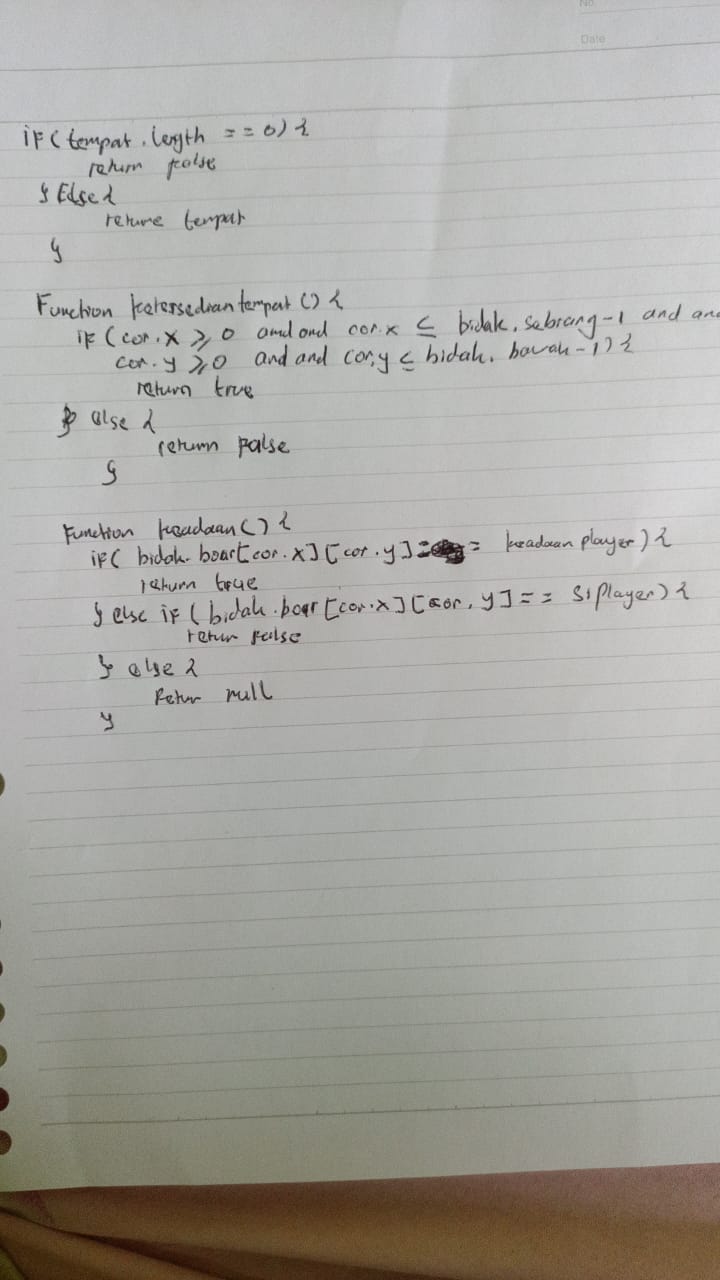 No.
Date
if (tempat.length == 0) {
return false
} Else {
returne tempat
}
Function ketersedian tempat () {
if (cor.x ≥ 0 and and cor.x ≤ bidak.sebrang-1 and and
cor.y ≥ 0 and and cor,y ≤ bidak.bawah-1) {
return true
} else {
return false
}
Function keadaan () {
if ( bidak.boart[cor.x][cor.y] == keadaan player) {
return true
} else if ( bidak.boar [cor.x] [cor,y] == siplayer) {
retur false
} else {
Retur null
}